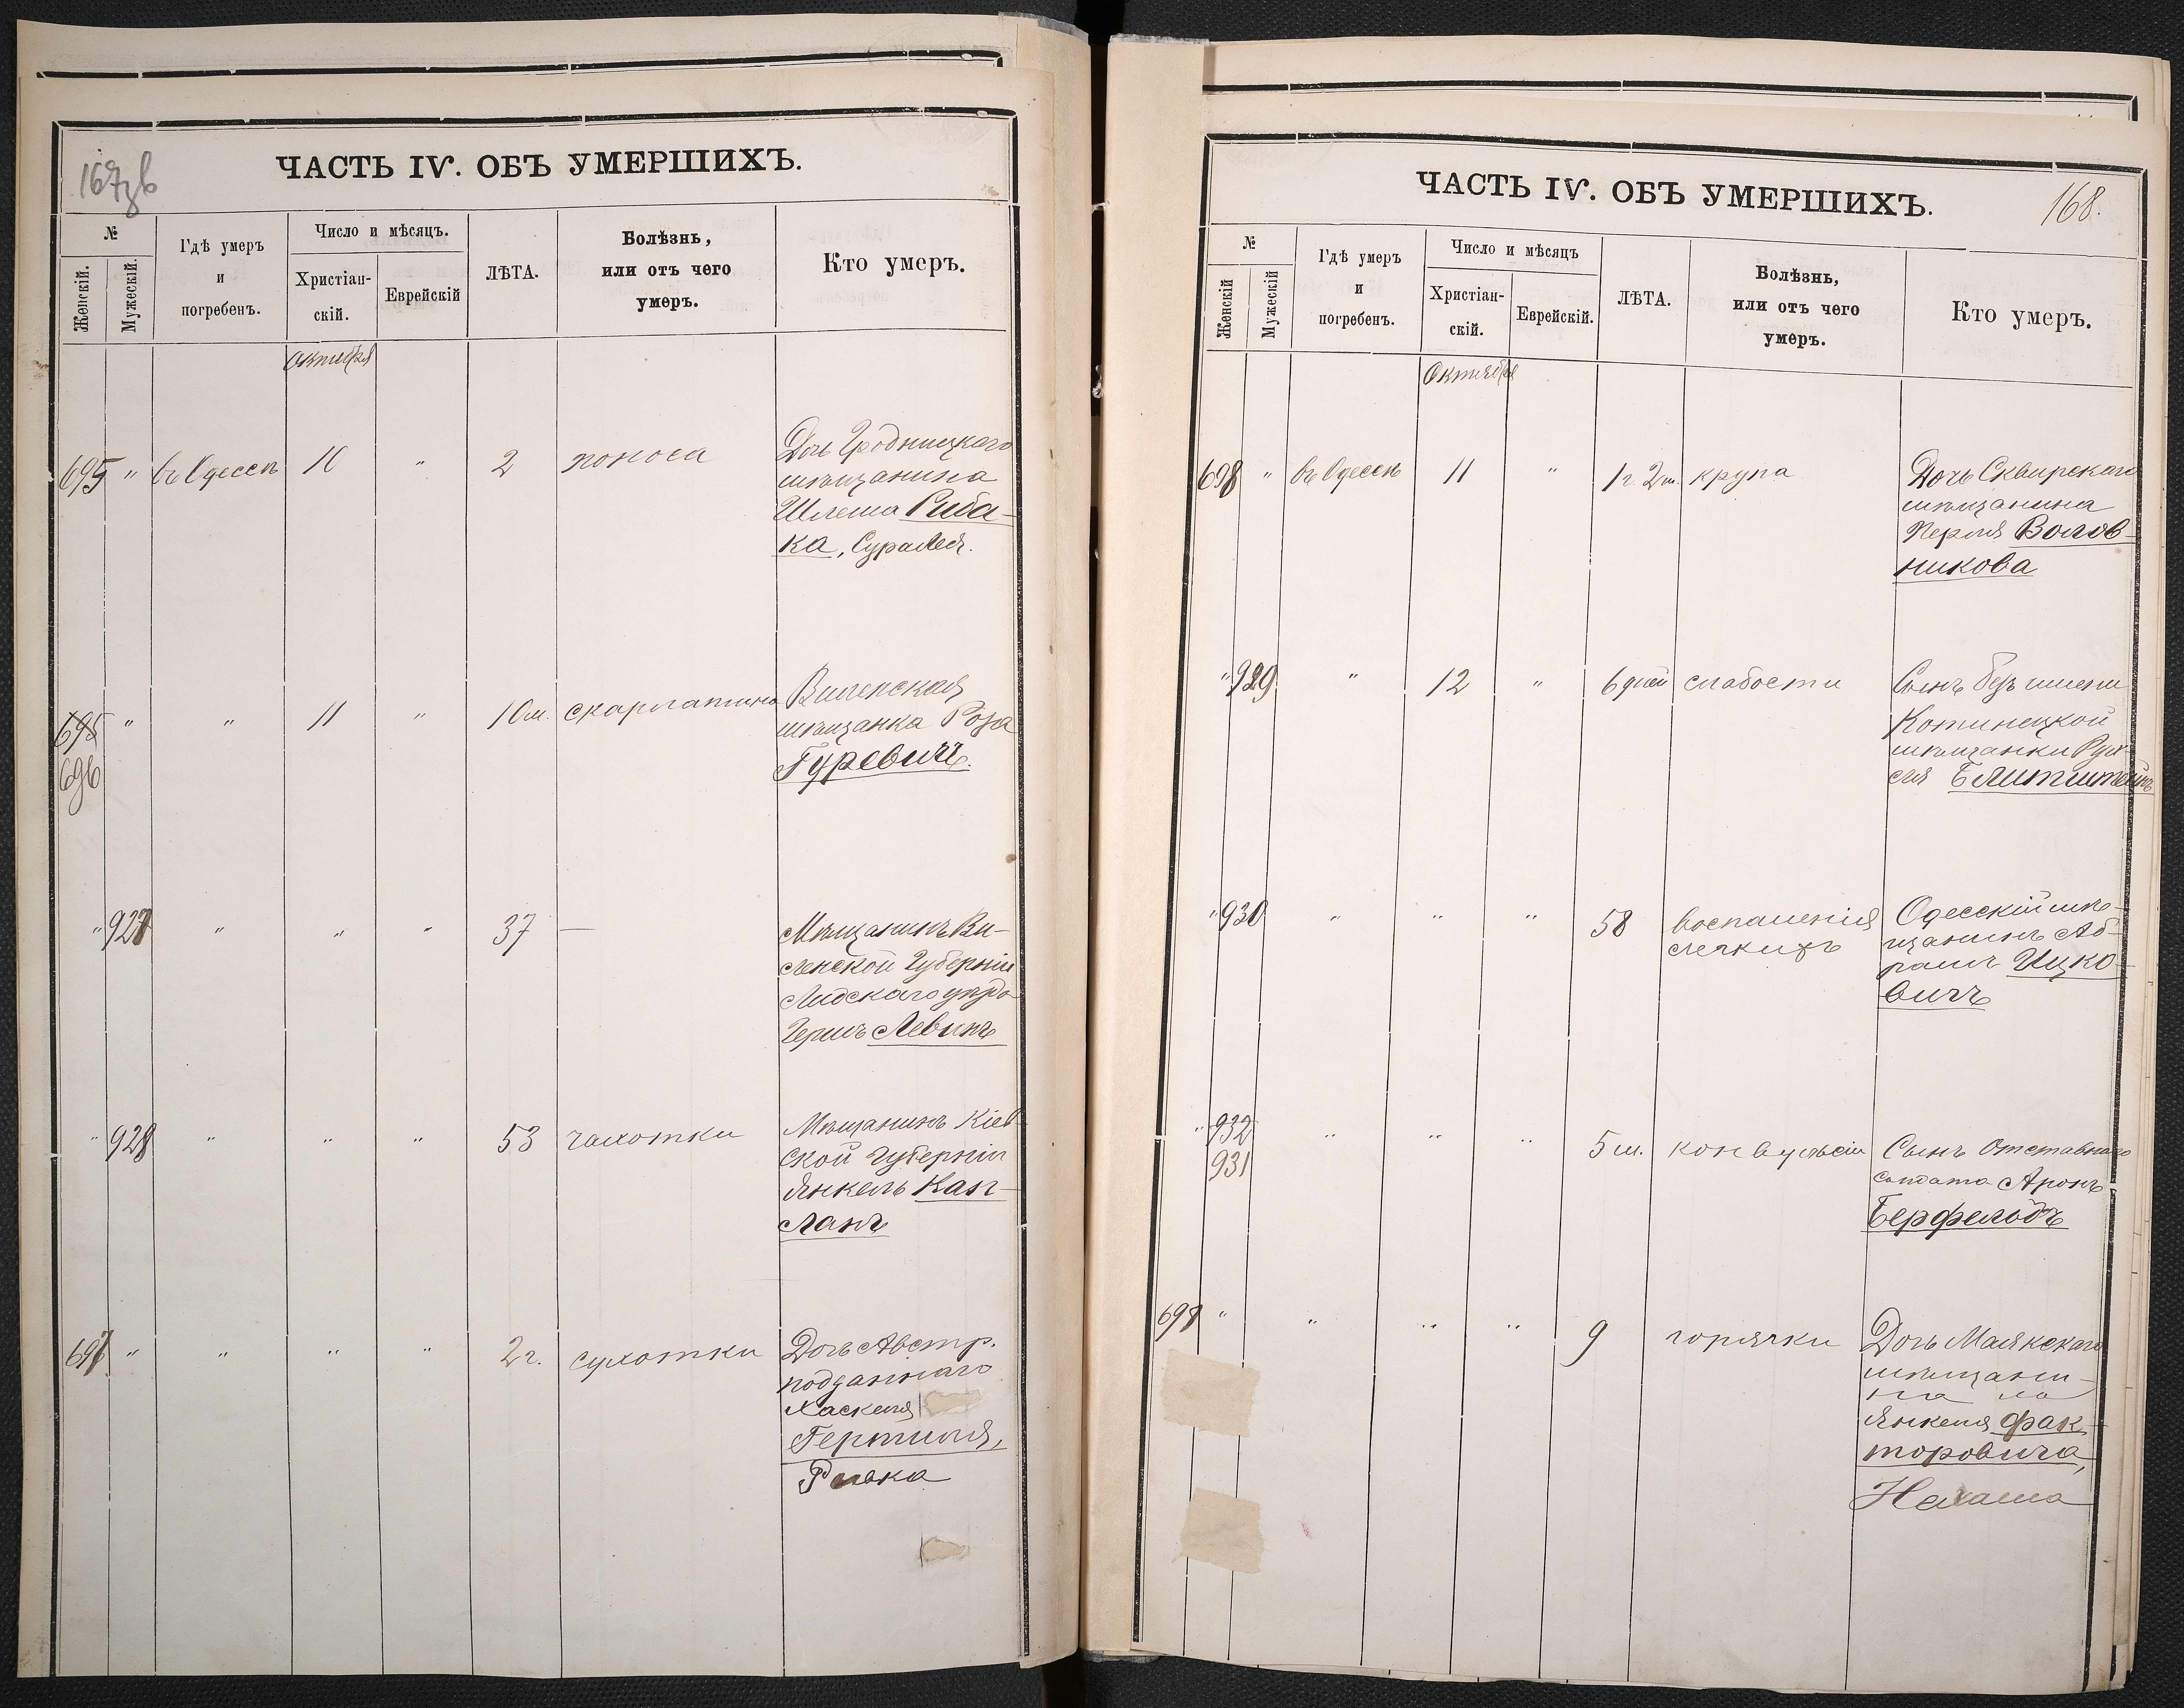 167зв
ЧАСТЬ IV. ОБЪ УМЕРШИХЪ.
№
Женскій.
Мужескій.
Гдѣ умеръ
и
погребенъ.
Число и мѣсяцъ.
Христіан-
скій.
Еврейскій
ЛѢТА.
Болѣзнь,
или отъ чего
умеръ.
Кто умеръ.
Октября
695 " въ Одессѣ 10 " 2 поноса
Дочь Гродницкаго
мѣщанина
Шлема Риба-
ка, Сура Лея.
695 " " 11 " 10 м. скарлатина
696
Виленская
мѣщанка Роза
Гуревичъ.
" 927 " " " 37 —
Мѣщанинъ Ви-
ленской Губерніи
Лидскаго уѣзда
Гершъ Левинъ
" 928 " " " 53 чахотки
Мѣщанинъ Кіев
ской Губерніи
Янкель Кап-
ланъ
697 " " " " 2 г. сухотки
Дочь Австр.
подданнаго
Хаскеля
Гертиля,
Ривка
ЧАСТЬ IV. ОБЪ УМЕРШИХЪ.
168.
№
Женскій
Мужескій
Гдѣ умеръ
и
погребенъ.
Число и мѣсяцъ
Христіан-
скій.
Еврейскій.
ЛѢТА.
Болѣзнь,
или отъ чего
умеръ.
Кто умеръ.
Октября
698 " въ Одессѣ 11 " 1 г. 2 м. крупа
Дочь Сквирскаго
мѣщанина
Перля Волов-
никова
" 929 " 12 " 6 дней слабости
Сынъ безъ имени
мѣщанки
сля Блитштейнъ
" 930 " " " 58 воспаленія
легкихъ
Одесскій мѣ-
щанинъ Аб-
рамъ Ицко-
вичъ
" 932 " " " 5 м. конвульсіи
931
Сынъ Отставнаго
солдата Аронъ
Берфельдъ
699 " " " " 9 горячки
Дочь Маякскаго
мѣщани-
на
Янкеля Фак-
торовича,
Нехама